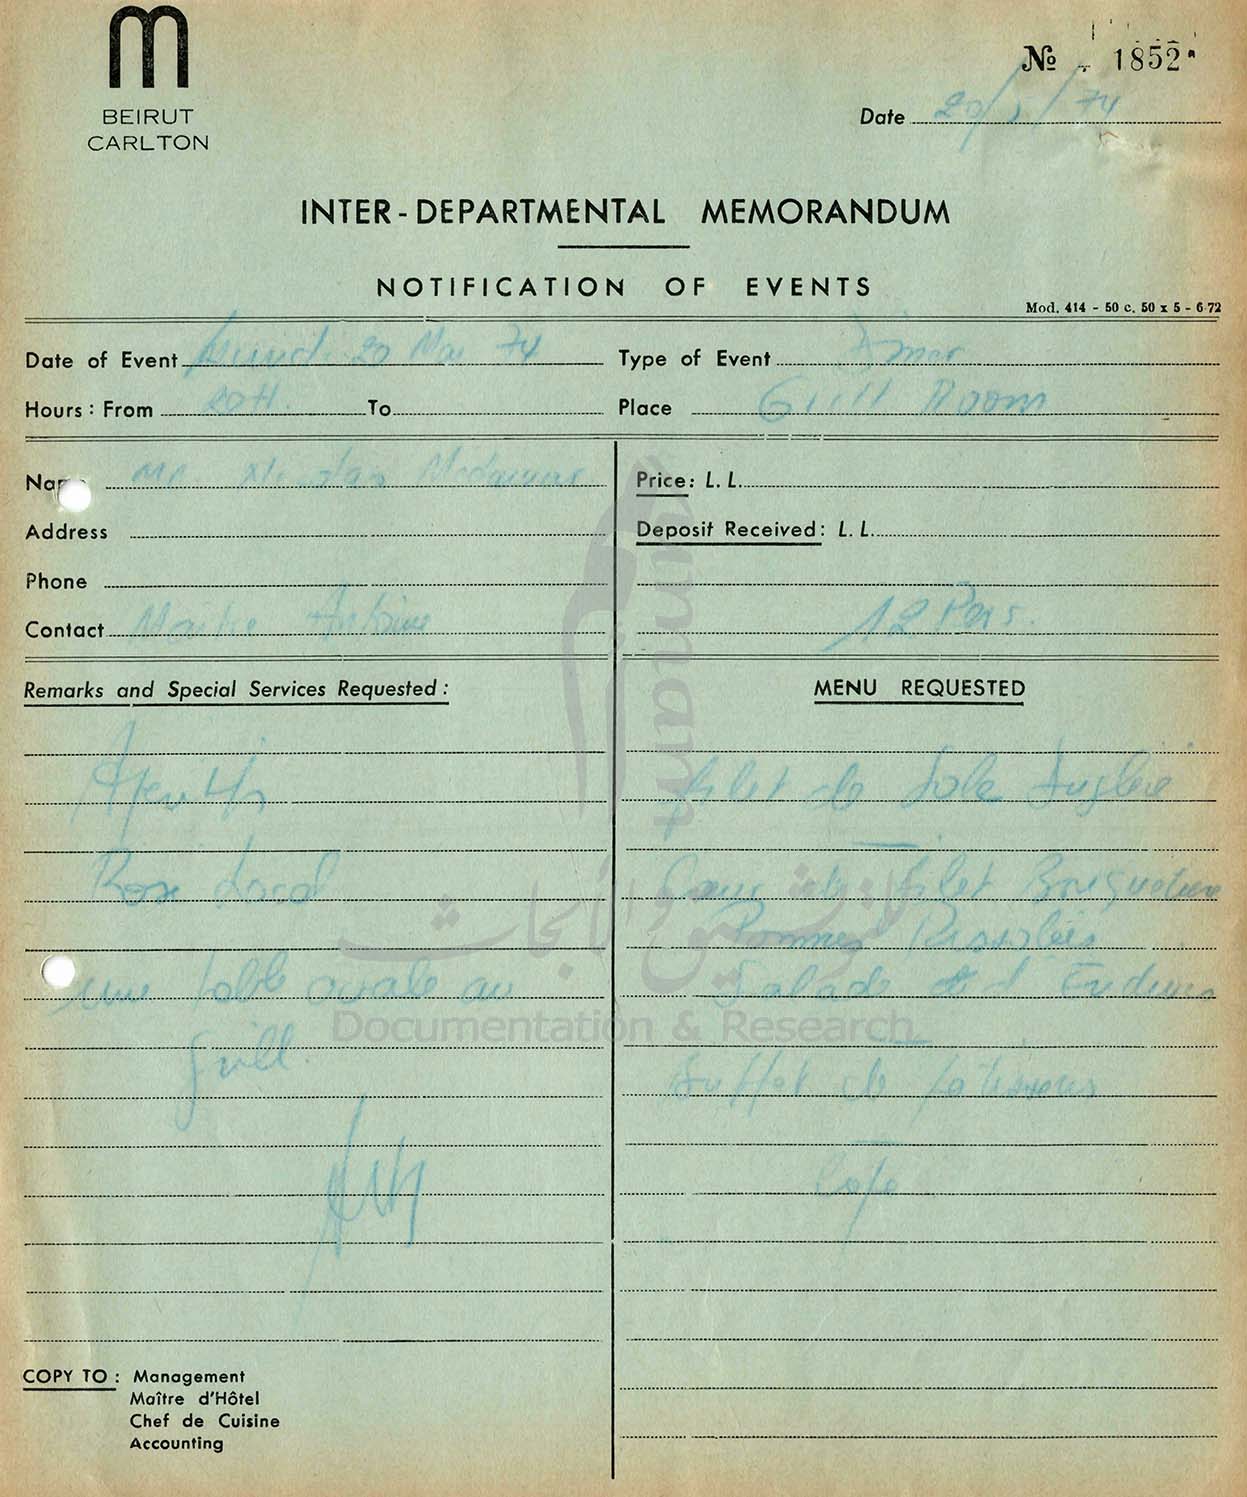 m
BEIRUT
CARLTON
№ 1852
Date 20/5/74
INTER-DEPARTMENTAL MEMORANDUM
NOTIFICATION OF EVENTS
Mod. 414 - 50 c. 50 x 5 - 6-72
Date of Event 20 Mai 74
Type of Event Diner
Hours: From 20H. To
Place Grill Room
Name Mr Nicolas
Address
Phone
Contact Maitre Antoine
Price: L. L.
Deposit Received: L. L.
12 Pers.
Remarks and Special Services Requested:
Rose Local
une table ovale au
grill.
MENU REQUESTED
Filet de Sole Dugleré
Coeur de Filet Bouquetière
Pommes Rissolées
Salade d'Endives
Buffet de patisseries
Café
COPY TO: Management
Maître d'Hôtel
Chef de Cuisine
Accounting
أمم
للتوثيق والأبحاث
Umam
Documentation & Research